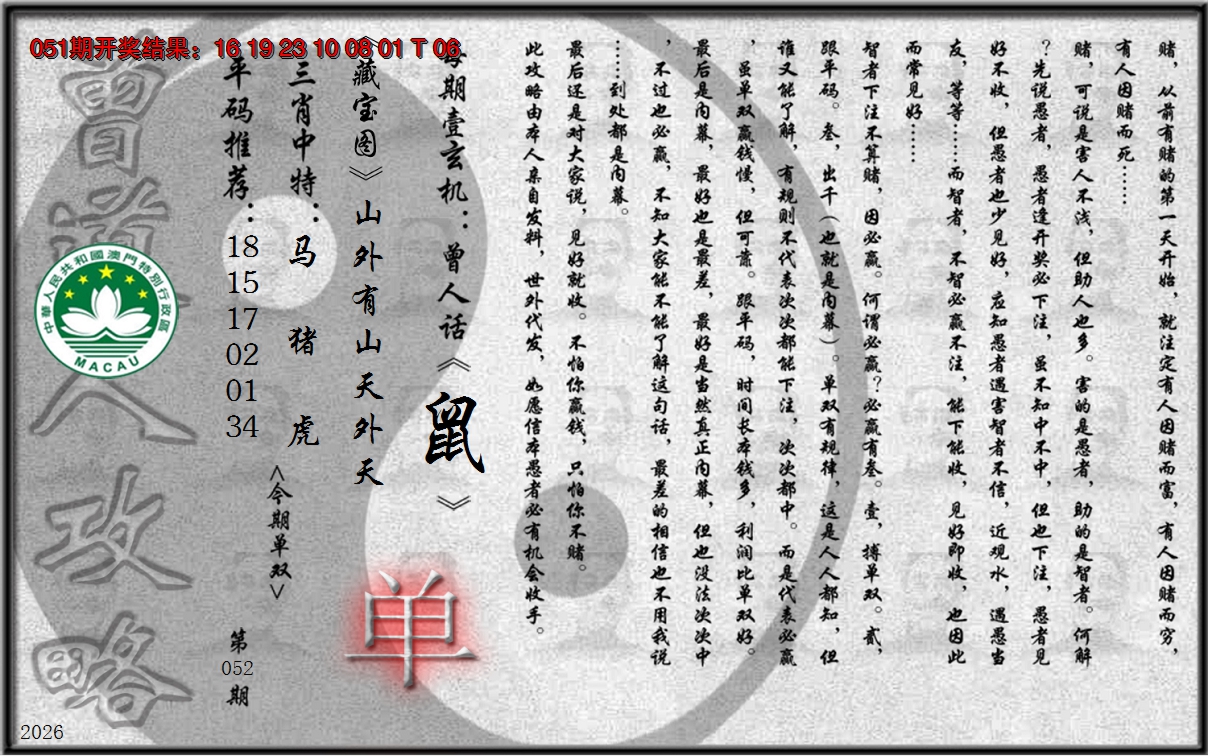 051期开奖结果：16 19 23 10 08 01 T 06
赌，从前有赌的第一天开始，就注定有人因赌而富，有人因赌而穷，
有人因赌而死……
赌，可说是害人不浅，但助人也多。害的是愚者，助的是智者。何解
？先说愚者，愚者逢开奖必下注，虽不知中不中，但也下注，愚者见
好不收，但愚者也少见好，应知愚者遇害智者不信，近观水，遇愚当
友，等等……而智者，不智必赢不注，能下能收，见好即收，也因此
而常见好……
智者下注不算赌，因必赢。何谓必赢？必赢有叁。壹，搏单双。贰，
跟平码。叁，出千（也就是内幕）。单双有规律，这是人人都知，但
谁又能了解，有规则不代表次次都能下注，次次都中。而是代表必赢
，虽单双赢钱慢，但可靠。跟平码，时间长本钱多，利润比单双好。
最后是内幕，最好也是最差，最好是当然真正内幕，但也没法次次中
，不过也必赢，不知大家能不能了解这句话，最差的相信也不用我说
……到处都是内幕。
最后还是对大家说，见好就收。不怕你赢钱，只怕你不赌。
此攻略由本人亲自发料，世外代发，如愿信本愚者必有机会收手。
每期壹玄机：曾人话《鼠》
《藏宝图》山外有山天外天
三肖中特：马 猪 虎
平码推荐：18 15 17 02 01 34
<今期单双>
单
第052期
曾道人攻略
中華人民共和國澳門特別行政區
MACAU
2026